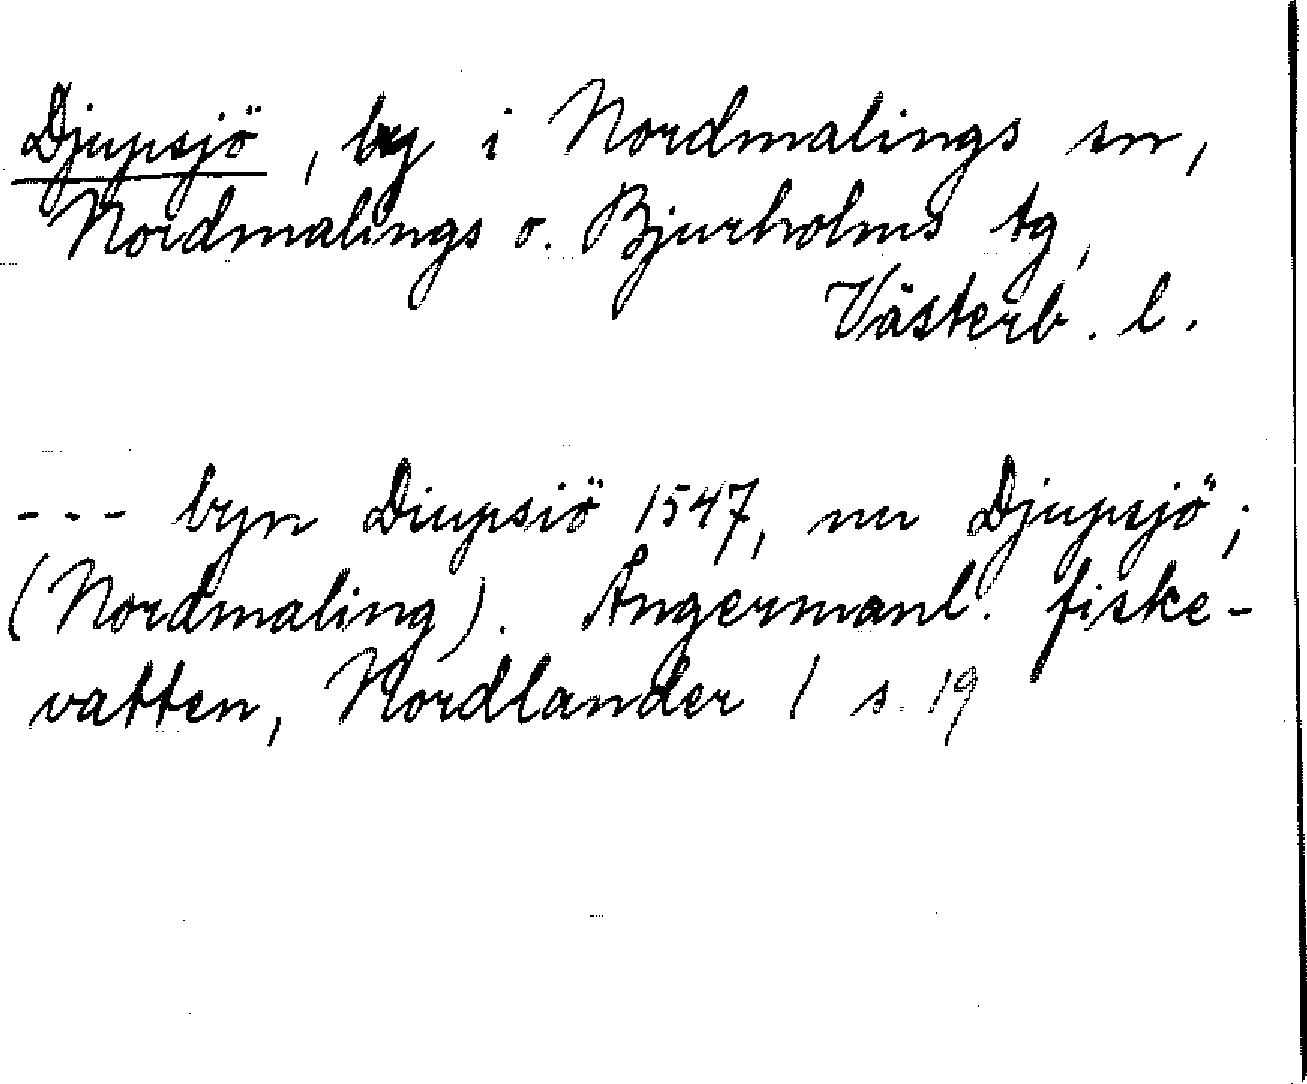 Djupsjö, by i Nordmalings sn,
Nordmalings o. Bjurholms tg,
Västerb. l.
--- byn Diupsiö 1547, nu Djupsjö;
(Nordmaling). Ångermanl. fiske-
vatten, Nordlander 1 s. 19